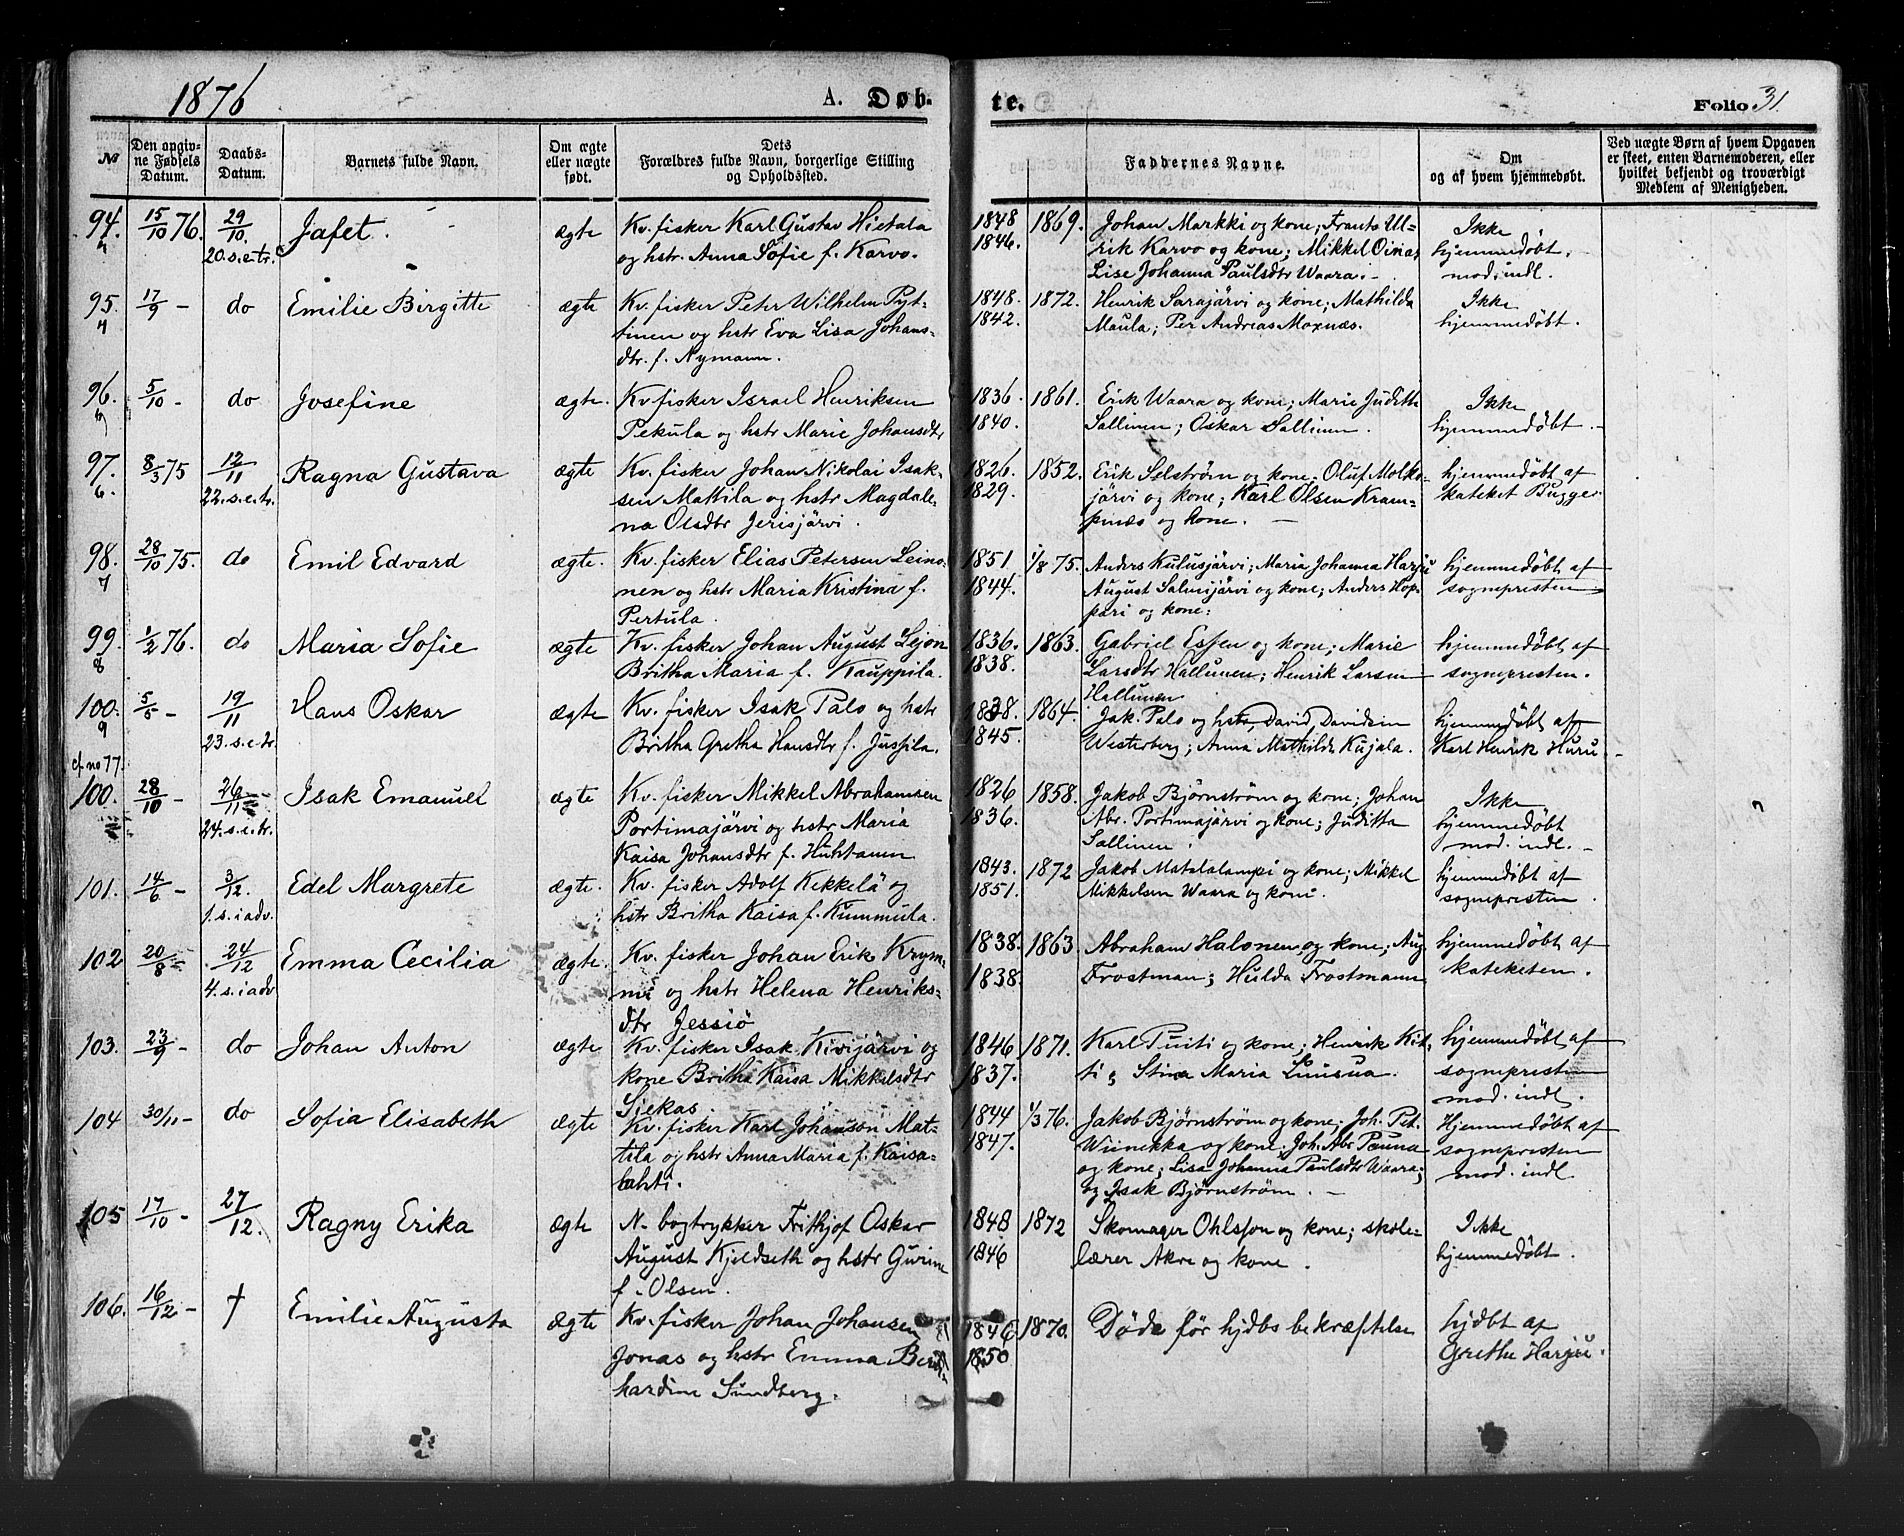 1876
A. Døb-
te.
Folio 31.
№
Den opgiv-
ne Fødsels
Datum.
Daabs-
Datum.
Barnets fulde Navn.
Om ægte
eller uægte
født.
Dets
Forældres fulde Navn, borgerlige Stilling
og Opholdssted.
Faddernes Navne.
Om
og af hvem hjemmedøbt.
Ved uægte Børn af hvem Opgaven
er skeet, enten Barnemoderen, eller
hvilket bekjendt og troværdigt
Medlem af Menigheden.
94. 15/10 76. 29/10. 20.s.e.tr. Jafet. ægte
Kv. fisker Karl Gustav Hietala
og hstr. Anna Sofie f. Karvo.
1848 1869.
1846.
Johan Markki og kone; Frants Ul-
rik Karvo og kone; Mikkel Oinas,
Lise Johanna Paulsdtr Waara.-
Ikke
hjemmedøbt.
mod. indl.
95. 17/9 - do Emilie Birgitte ægte
Kv. fisker Peter Wilhelm Pyt-
tinen og hstr Eva Lisa Johans-
dtr. f. Nymann.
1848. 1872.
1842.
Henrik Sarajärvi og kone; Mathilda
Maula; Per Andreas Moxnæs.
Ikke
hjemmedøbt.
96. 5/10 - do Josefine ægte.
Kv fisker Israel Henriksen
Pekula og hstr Marie Johansdtr
1836. 1861.
1840.
Erik Waara og kone; Marie Judithe
Sallinen; Oskar Sallinen.
Ikke
hjemmedøbt.-
97. 8/3 75 12/11 22.s.e.tr. Ragna Gustava ægte
Kv. fisker Johan Nikolai Isak-
sen Mattila og hstr Magdale-
na Olsdtr Jerisjärvi.
1826. 1852.
1829.
Erik Selstrøm og kone. Oluf Molko-
järvi og kone; Karl Olsen Kram-
pinæs og kone. -
hjemmedøbt af
kateket Bugge.
98. 7 28/10 75. do Emil Edvard ægte.
Kv. fisker Elias Petersen Leino-
nen og hstr Maria Kristina f.
Pertula.
1851 1/8 75.
1844.
Anders Kulusjärvi; Maria Johanna Harju
August Salmijärvi og kone; Anders Hop-
pari og kone.
hjemmedøbt af
sognepresten
99. 8 1/2 76. do Maria Sofie ægte
Kv. fisker Johan August Lejon
Britha Maria f. Kauppila.
1836. 1863.
1838.
Gabriel Esfen og kone; Marie
Larsdtr Hallunen; Henrik Larsen
Hallunen
hjemmedøbt af
sognepresten.
100. 9 5/5 - 19/11 23.s.e.tr. Hans Oskar ægte
Kv. fisker Isak Palo og hstr
Britha Gretha Hansdtr f. Jussila.
1838. 1864.
1845.
Jak. Palo og hstr, David Davidsen
Westerberg; Anna Mathilde Kujala.
hjemmedøbt af
Karl Henrik Huru
cf. no 77.
100. 28/10 - 26/11 24.s.e.tr. Isak Emanuel ægte
Kv. fisker Mikkel Abrahamsen
Portimajärvi og hstr Maria
Kaisa Johansdtr f. Huhtanen
1826 1858.
1836.
Jakob Bjørnstrøm og kone; Johan
Abr. Portimajärvi og kone; Juditta
Sallinen.
Ikke
hjemmedøbt
mod. indl.-
101. 14/6 - 3/12. 1.s.i adv. Edel Margrete ægte.
Kv. fisker Adolf Kekkelä og
hstr Britha Kaisa f. Kummula.
1843. 1872
1851.
Jakob Matalalampi og kone; Mikkel
Mikkelsen Waara og kone
hjemmedøbt af
sognepresten.
102 20/8 - 24/12 4.s.i adv Emma Cecilia ægte.
Kv. fisker Johan Erik Krym-
mi og hstr Helena Henriks-
dtr Jessiö
1838. 1863
1838.
Abraham Halonen og kone; Aug
Frostman; Hulda Frostmann
hjemmedøbt af
kateketen.
103. 23/9 - do Johan Anton ægte
Kv. fisker Isak Kivijärvi og
kone Britha Kaisa Mikkelsdtr
Siekas.
1846 1871.
1837.
Karl Puiti og kone; Henrik Kit-
ti; Stina Maria Luusua.
hjemmedøbt af
sognepresten
mod. indl.
104 30/11 - do Sofia Elisabeth ægte
Kv. fisker Karl Johanson Mat-
tila og hstr Anna Maria f. Kaisa-
lahti.
1844 1/3 76.
1847.
Jakob Bjørnstrøm og kone; Joh. Pet.
Wiinikka og kone. Joh. Abr Pauna
og kone; Lisa Johanna Paulsdtr Waara;
og Isak Bjørnstrøm. -
Hjemmedøbt af
sognepresten
mod. indl
105 17/10 - 27/12. Ragny Erika ægte
N. bogtrykker Frithjof Oskar
August Kjeldseth og hstr Gurine
f. Olsen.
1848 1872
1846
Skomager Ohlsson og kone; skole-
lærer Akre og kone.
Ikke
hjemmedøbt.
106. 16/12 - † Emilie Augusta ægte
Kv. fisker Johan Johansen
Jonas og hstr Emma Bern-
hardine Sundberg.
1846 1870.
1850
Døde før hjdbs bekræftelse
hjdbt af
Grethe Harju.